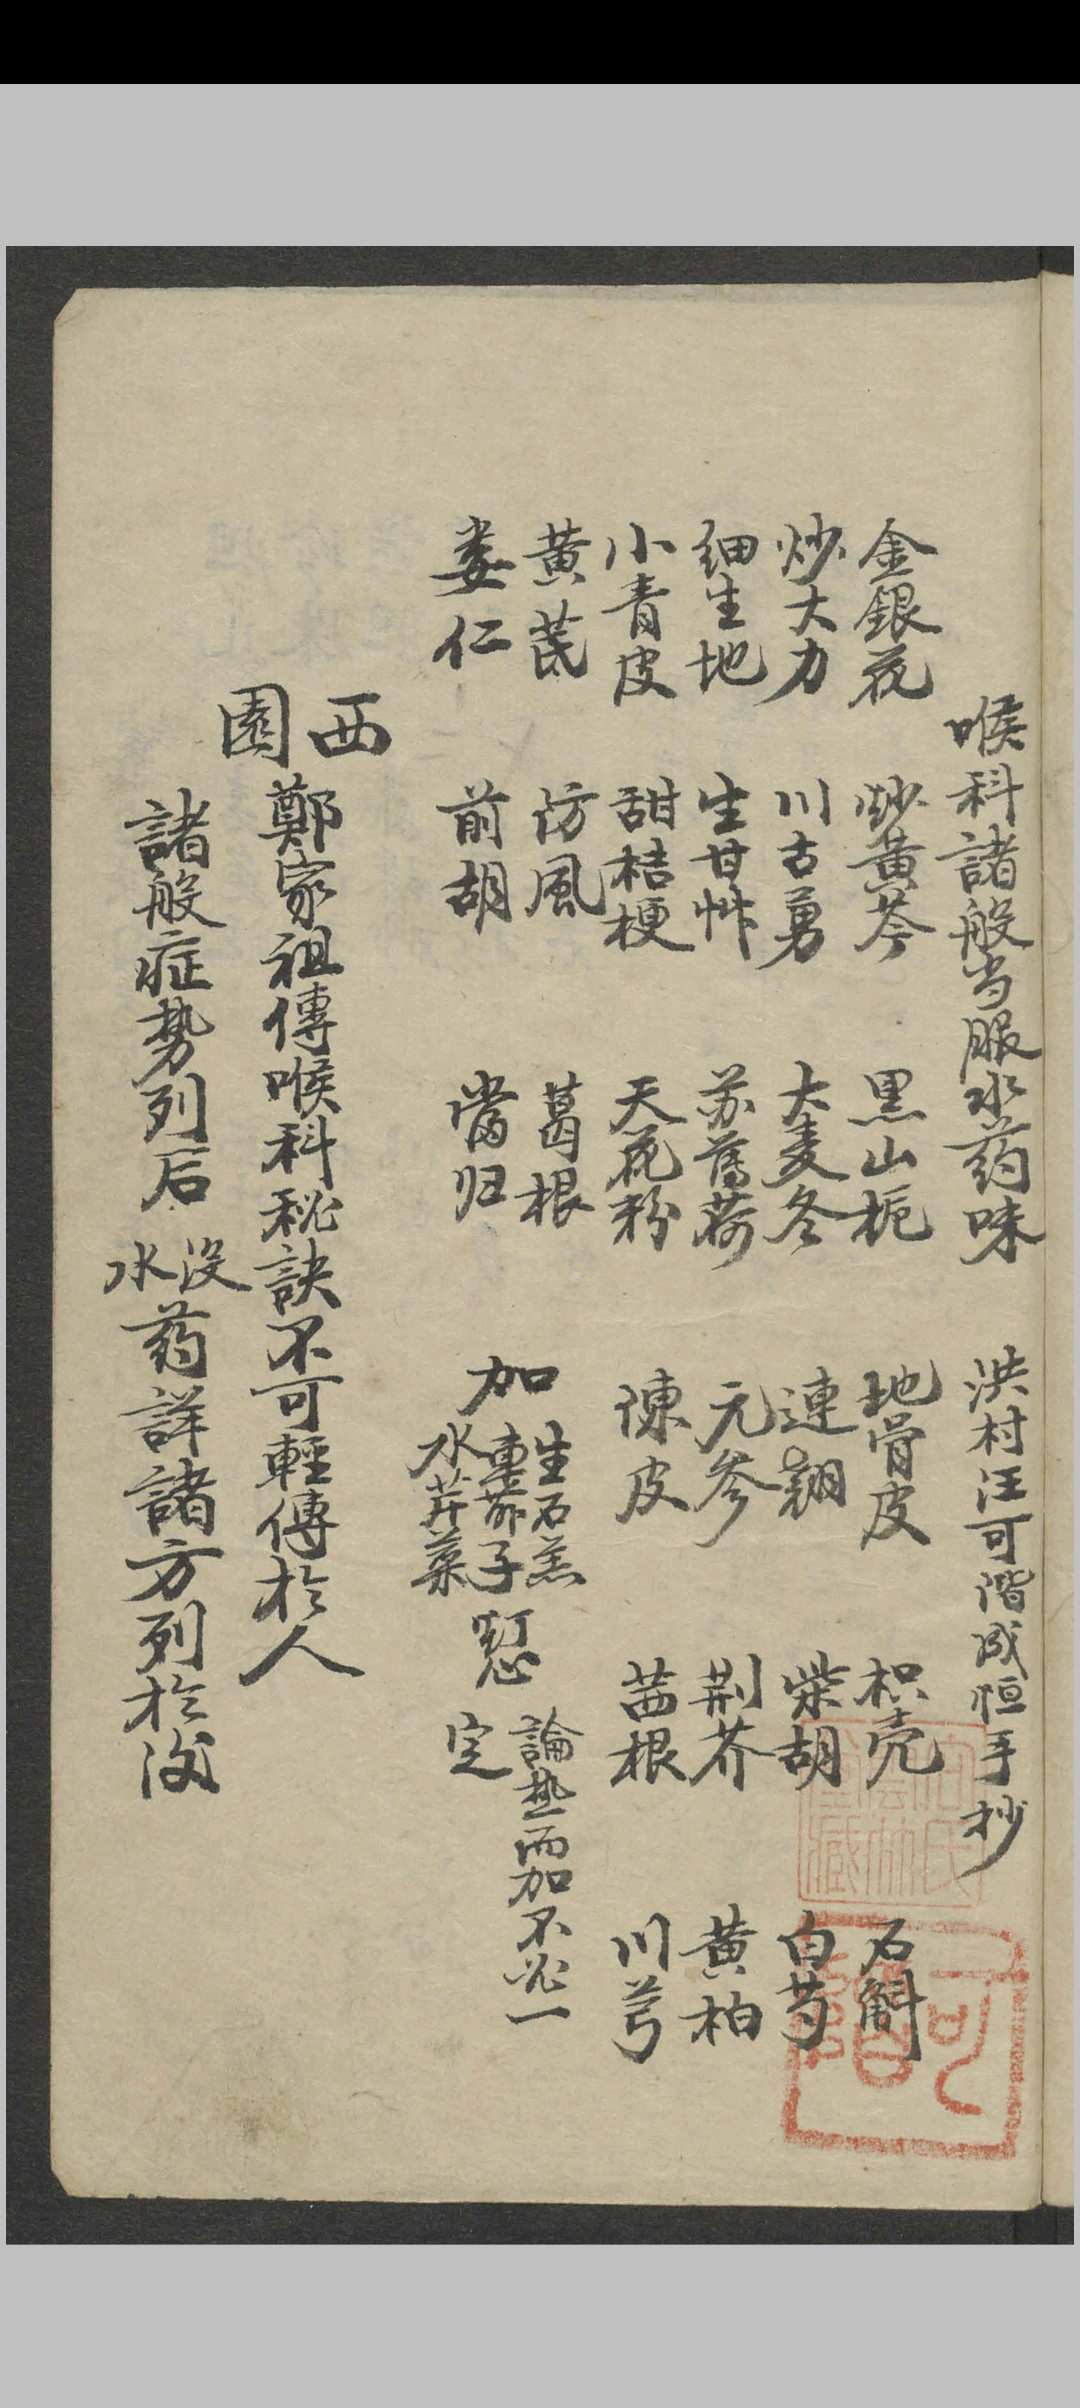 喉科諸般当服水药味　洪村汪可階成恒手抄
金銀花　炒黄芩　黒山栀　地骨皮　枳壳　石斛
炒大力　川古勇　大麦冬　連翘　柴胡　白芍
细生地　生甘艸　苏薄荷　元参　荆芥　黄柏
小青皮　甜桔梗　天花粉　陳皮　茜根　川芎
黄芪　防風　葛根
蒌仁　前胡　當归
加　生石羔　車前子　水　菜
論热而加不必一定
西園　鄭家祖傳喉科秘訣不可輕傳於人
諸般症势列后　没水药詳諸方列於後